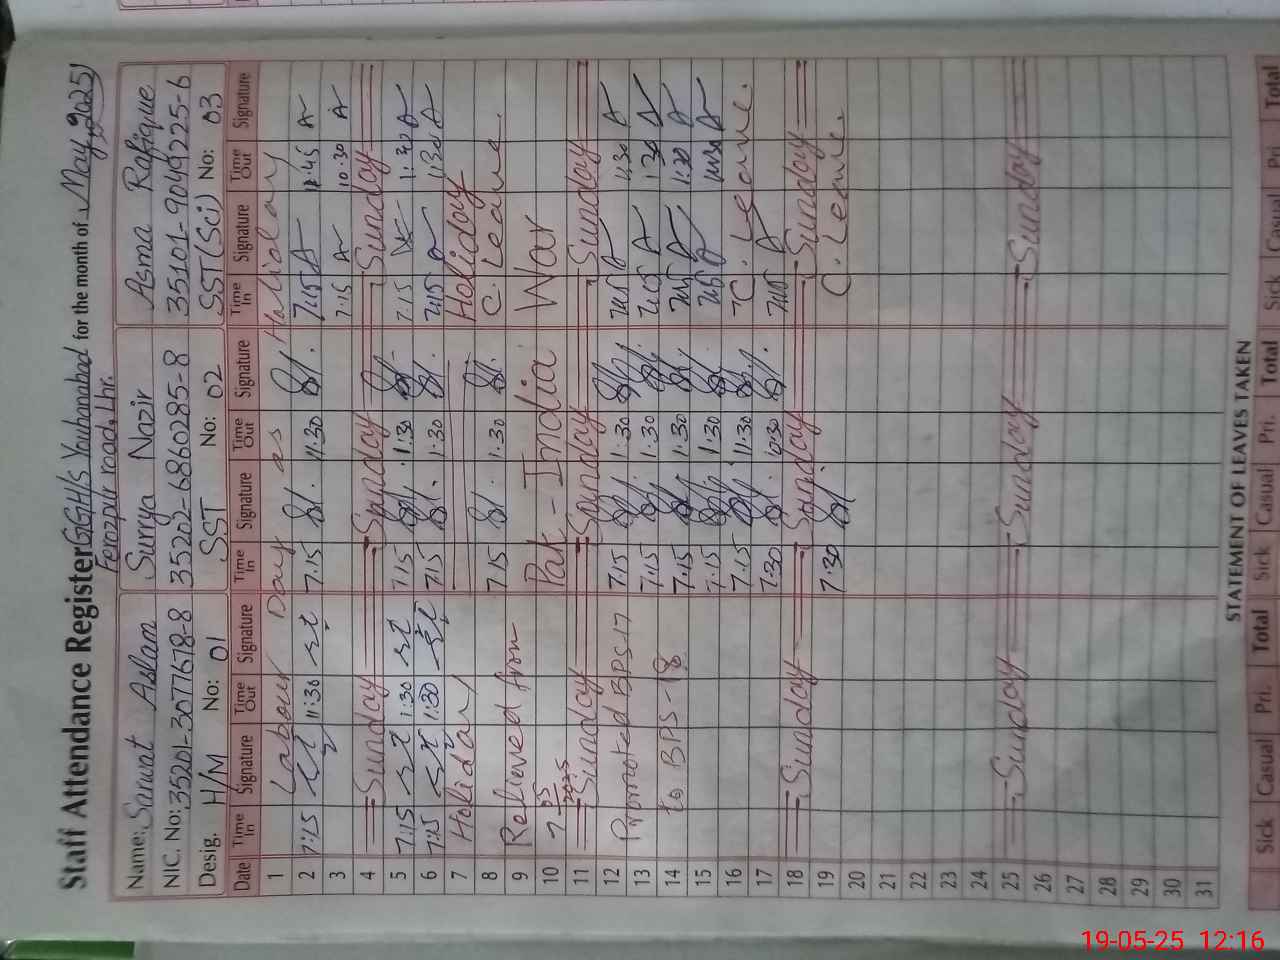 Staff Attendance Register GGH/S Youhanabad for the month of May, 2025
Ferozpur road, Lhr.
Name: Sarwat Aslam Surrya Nazir Asma Rafique
NIC. No: 35201-3077678-8 35202-6860285-8 35101-9049225-6
Desig. H/M No: 01 SST No: 02 SST (Sci) No: 03
Date Time In Signature Time Out Signature Time In Signature Time Out Signature Time In Signature Time Out Signature
1 Labour Day as Haliolay
2 7:15 11:30 7.15 11.30 7:15 11:45
3 7:15 10:30
4 Sunday Sunday Sunday
5 7:15 1:30 7.15 1:30 7.15 1:30
6 7:15 1:30 7.15 1.30 7:15 1:30
7 Holiday Holiday
8 Relieved from 7.15 1.30 C. Leave.
9 Pak - India War
10 7 05 2025
11 Sunday Sunday Sunday
12 Promoted BPS-17 7.15 1.30 7:15 1:30
13 7.15 1.30 7:15 1:30
14 to BPS-18 7.15 1.30 7:15 1:30
15 7.15 1.30 7:15
16 7.15 11.30 C. Leave.
17 7.30 7:15
18 Sunday Sunday Sunday
19 7.30 C. Leave.
20
21
22
23
24
25 Sunday Sunday Sunday
26
27
28
29
30
31
STATEMENT OF LEAVES TAKEN
Sick Casual Pri. Total Sick Casual Pri. Total Sick Casual Pri. Total
19-05-25 12:16